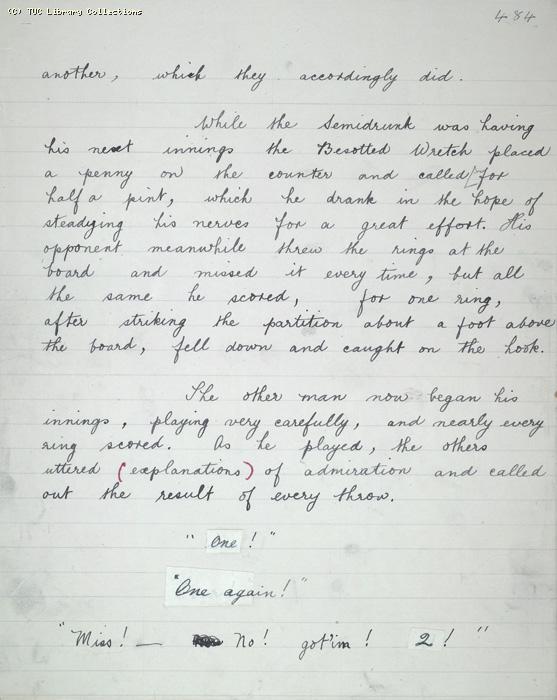 (C) TUC Library Collections
484
another, which they accordingly did.
While the Semidrunk was having
his next innings the Besotted Wretch placed
a penny on the counter and called for
half a pint, which he drank in the hope of
steadying his nerves for a great effort. His
opponent meanwhile threw the rings at the
board and missed it every time, but all
the same he scored, for one ring,
after striking the partition about a foot above
the board, fell down and caught on the hook.
The other man now began his
innings, playing very carefully, and nearly every
ring scored. As he played, the others
uttered (explanations) of admiration and called
out the result of every throw.
"One!"
"One again!"
"Miss! — No! got'im! 2!"